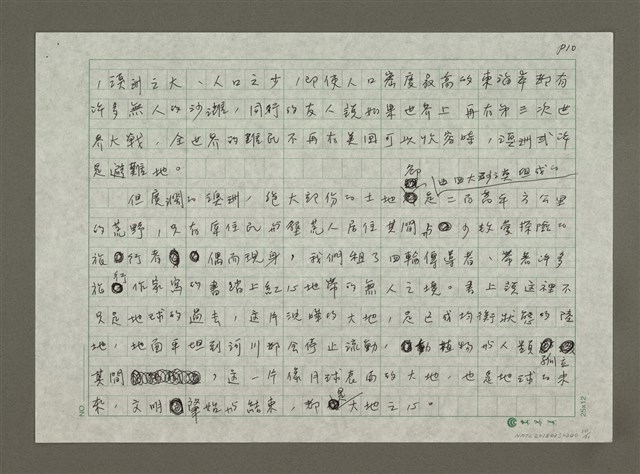 P10
，澳洲之大、人口之少，即使人口密度最高的東海岸都有
許多無人的沙灘，同行的友人說如果世界上再有第三次世
界大戰，全世界的難民不再有美國可以收容時，澳洲或許
是避難地。
但廣濶的澳洲，絕大部份的土地卻是由四大沙漠組成的二百萬平方公里
的荒野，只有原住民和墾荒人居住其間與少數愛探險的
旅行者偶而現身，我們租了四輪傳導者、帶著許多
旅行作家寫的書踏上紅心地帶的無人之境。書上說這裡不
只是地球的過去，這片沈睡的大地，是已成均衡狀態的陸
地，地面平坦到河川都會停止流動，動植物或人類孤立
其間，這一片像月球表面的大地，也是地球的未
來，文明肇始與結束，都是大地之心。
NO
25x12